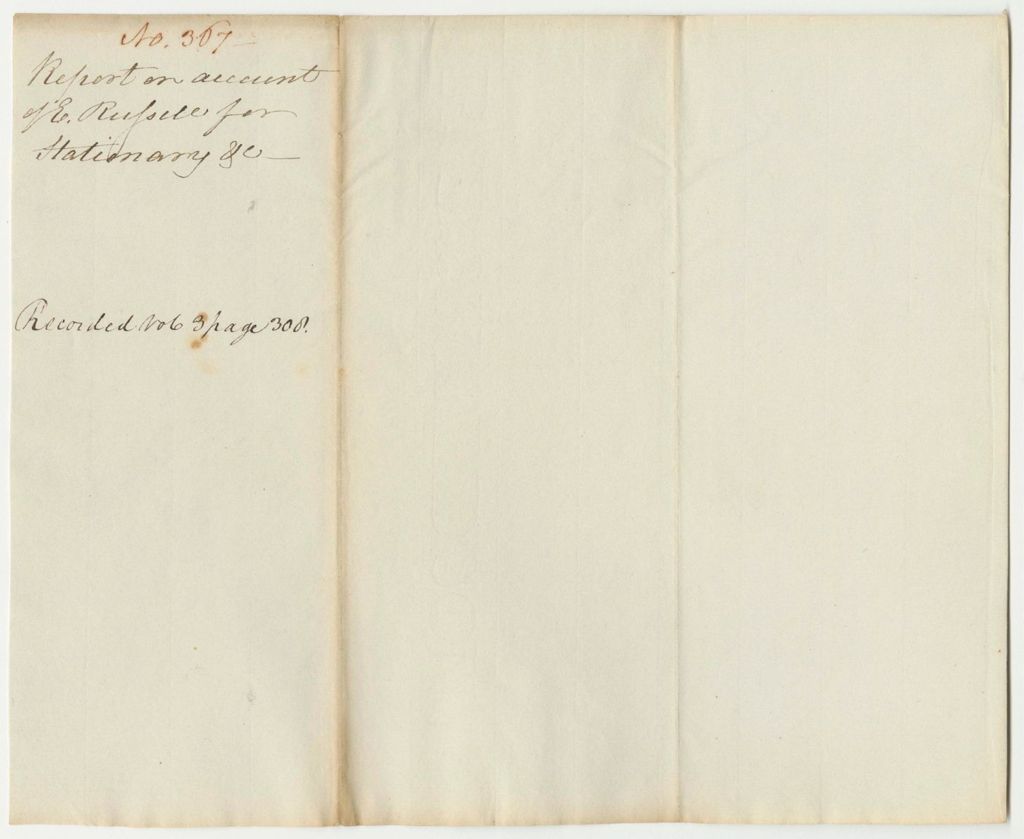 No. 367
Report on account
of E. Russell for
Stationary &c
Recorded Vol 3 page 308.